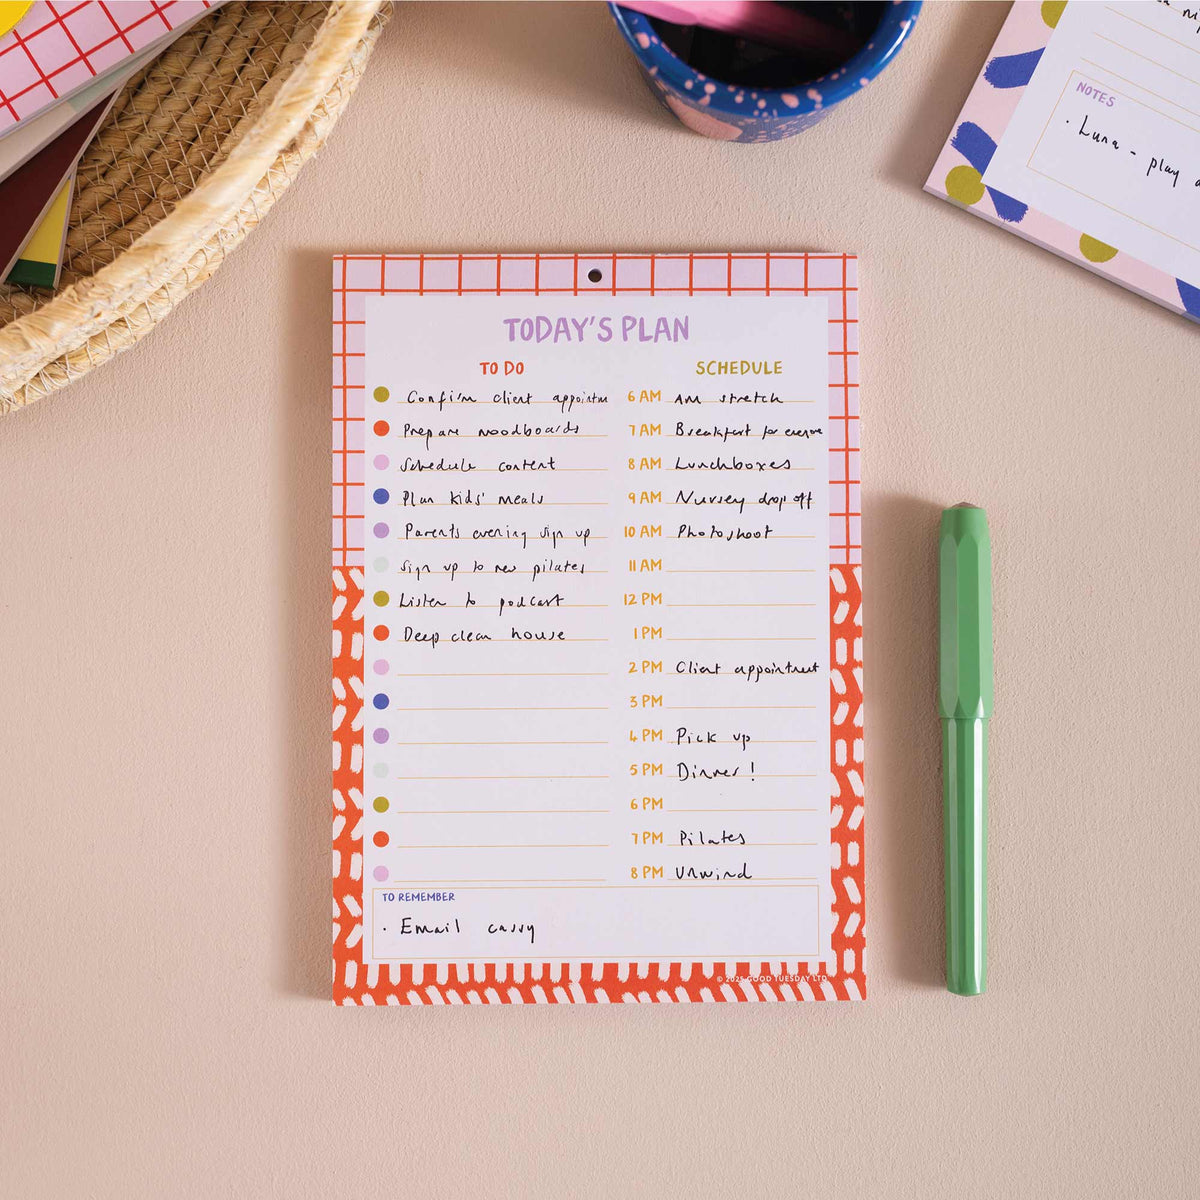 TODAY'S PLAN
TO DO
Confirm client appointm
Prepare moodboards
Schedule content
Plan kids' meals
Parents evening sign up
Sign up to new pilates
Listen to podcast
Deep clean house
SCHEDULE
6 AM AM stretch
7 AM Breakfast for everyone
8 AM Lunchboxes
9 AM Nursey drop off
10 AM Photoshoot
11 AM
12 PM
1 PM
2 PM Client appointment
3 PM
4 PM Pick up
5 PM Dinner!
6 PM
7 PM Pilates
8 PM Unwind
TO REMEMBER
· Email cassy
© 2025 GOOD TUESDAY LTD
NOTES
· Luna - play